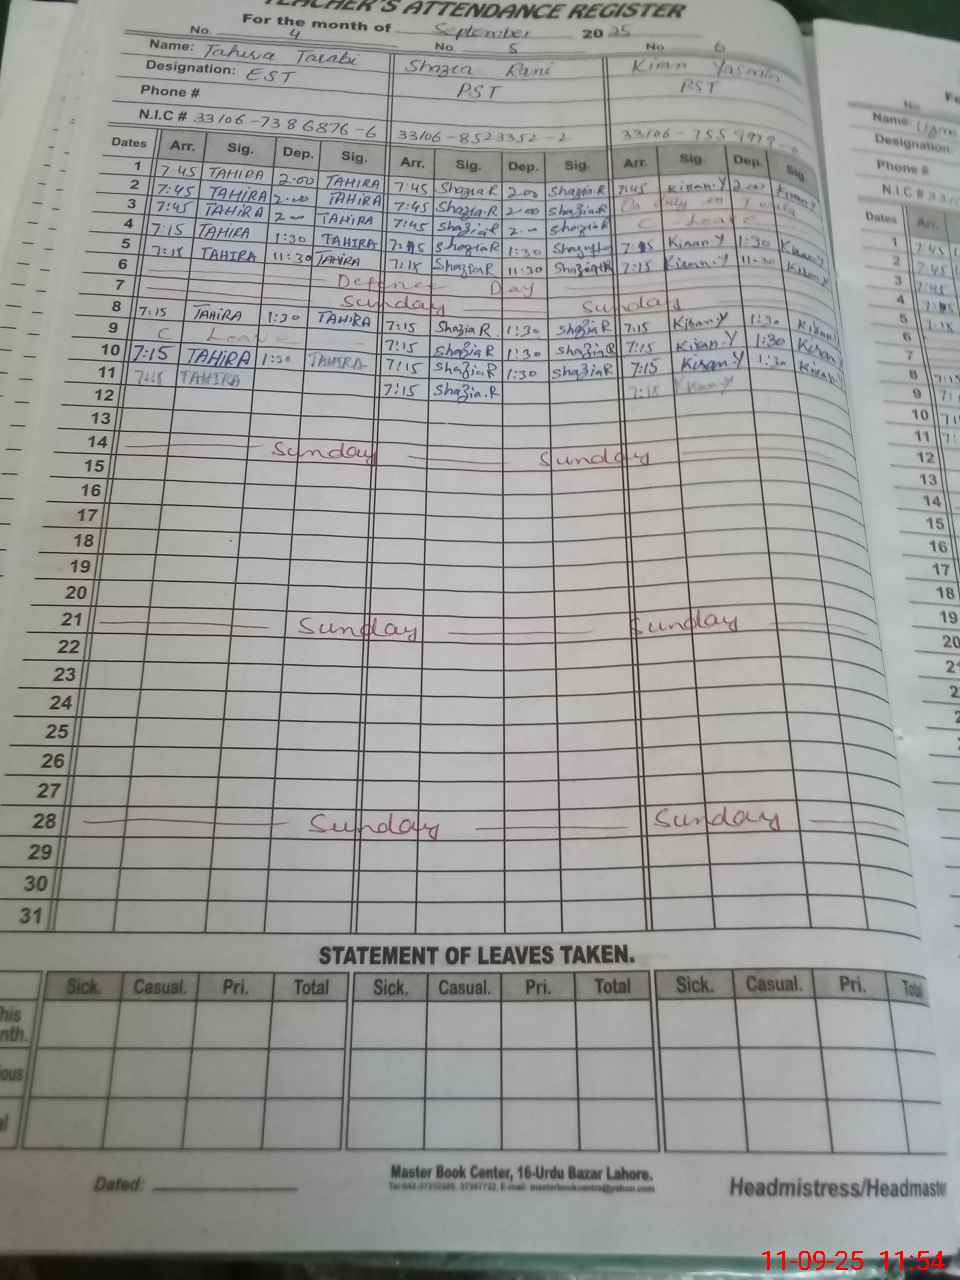 TEACHER'S ATTENDANCE REGISTER
For the month of September 2025
No. 4 No 5 No 6
Name: Tahira Tarabi Shazia Rani Kiran Yasmin
Designation: EST PST PST
Phone #
N.I.C # 33106-7386876-6 33106-8523352-2 33106-7559979-0
Dates Arr. Sig. Dep. Sig. Arr. Sig. Dep. Sig. Arr. Sig. Dep. Sig.
1 7:45 TAHIRA 2:00 TAHIRA 7:45 Shazia R 2:00 Shazia R 7:45 Kiran.Y 2:00 Kiran Y
2 7:45 TAHIRA 2:00 TAHIRA 7:45 Shazia.R 2:00 Shazia R On duty
3 7:45 TAHIRA 2:00 TAHIRA 7:45 Shazia R 2:00 Shazia R C Leave
4 7:15 TAHIRA 1:30 TAHIRA 7:15 Shazia R 1:30 7:15 Kiran Y 1:30 Kiran Y
5 7:15 TAHIRA 11:30 TAHIRA 7:15 Shazia R 11:30 Shazia R 7:15 Kiran.Y 11:30 Kiran Y
6 Defence Day
7 Sunday Sunday
8 7:15 TAHIRA 1:30 TAHIRA 7:15 Shazia R 1:30 Shazia R 7:15 Kiran Y 1:30 Kiran Y
9 C Leave 7:15 Shazia R 1:30 Shazia R 7:15 Kiran.Y 1:30 Kiran Y
10 7:15 TAHIRA 1:30 TAHIRA 7:15 Shazia R 1:30 Shazia R 7:15 Kiran Y 1:30 Kiran Y
11 7:15 TAHIRA 7:15 Shazia.R 7:15 Kiran Y
12
13
14 Sunday Sunday
15
16
17
18
19
20
21 Sunday Sunday
22
23
24
25
26
27
28 Sunday Sunday
29
30
31
STATEMENT OF LEAVES TAKEN.
Sick. Casual. Pri. Total Sick. Casual. Pri. Total Sick. Casual. Pri. Total
Dated:
Master Book Center, 16-Urdu Bazar Lahore.
Headmistress/Headmaste
Name:
Designation:
Phone #
N.I.C #
Dates Arr.
1 7:45
2 7:45
3 7:45
4 7:15
5 7:15
6
7
8 7:15
9
10
11
12
13
14
15
16
17
18
19
20
11-09-25 11:54